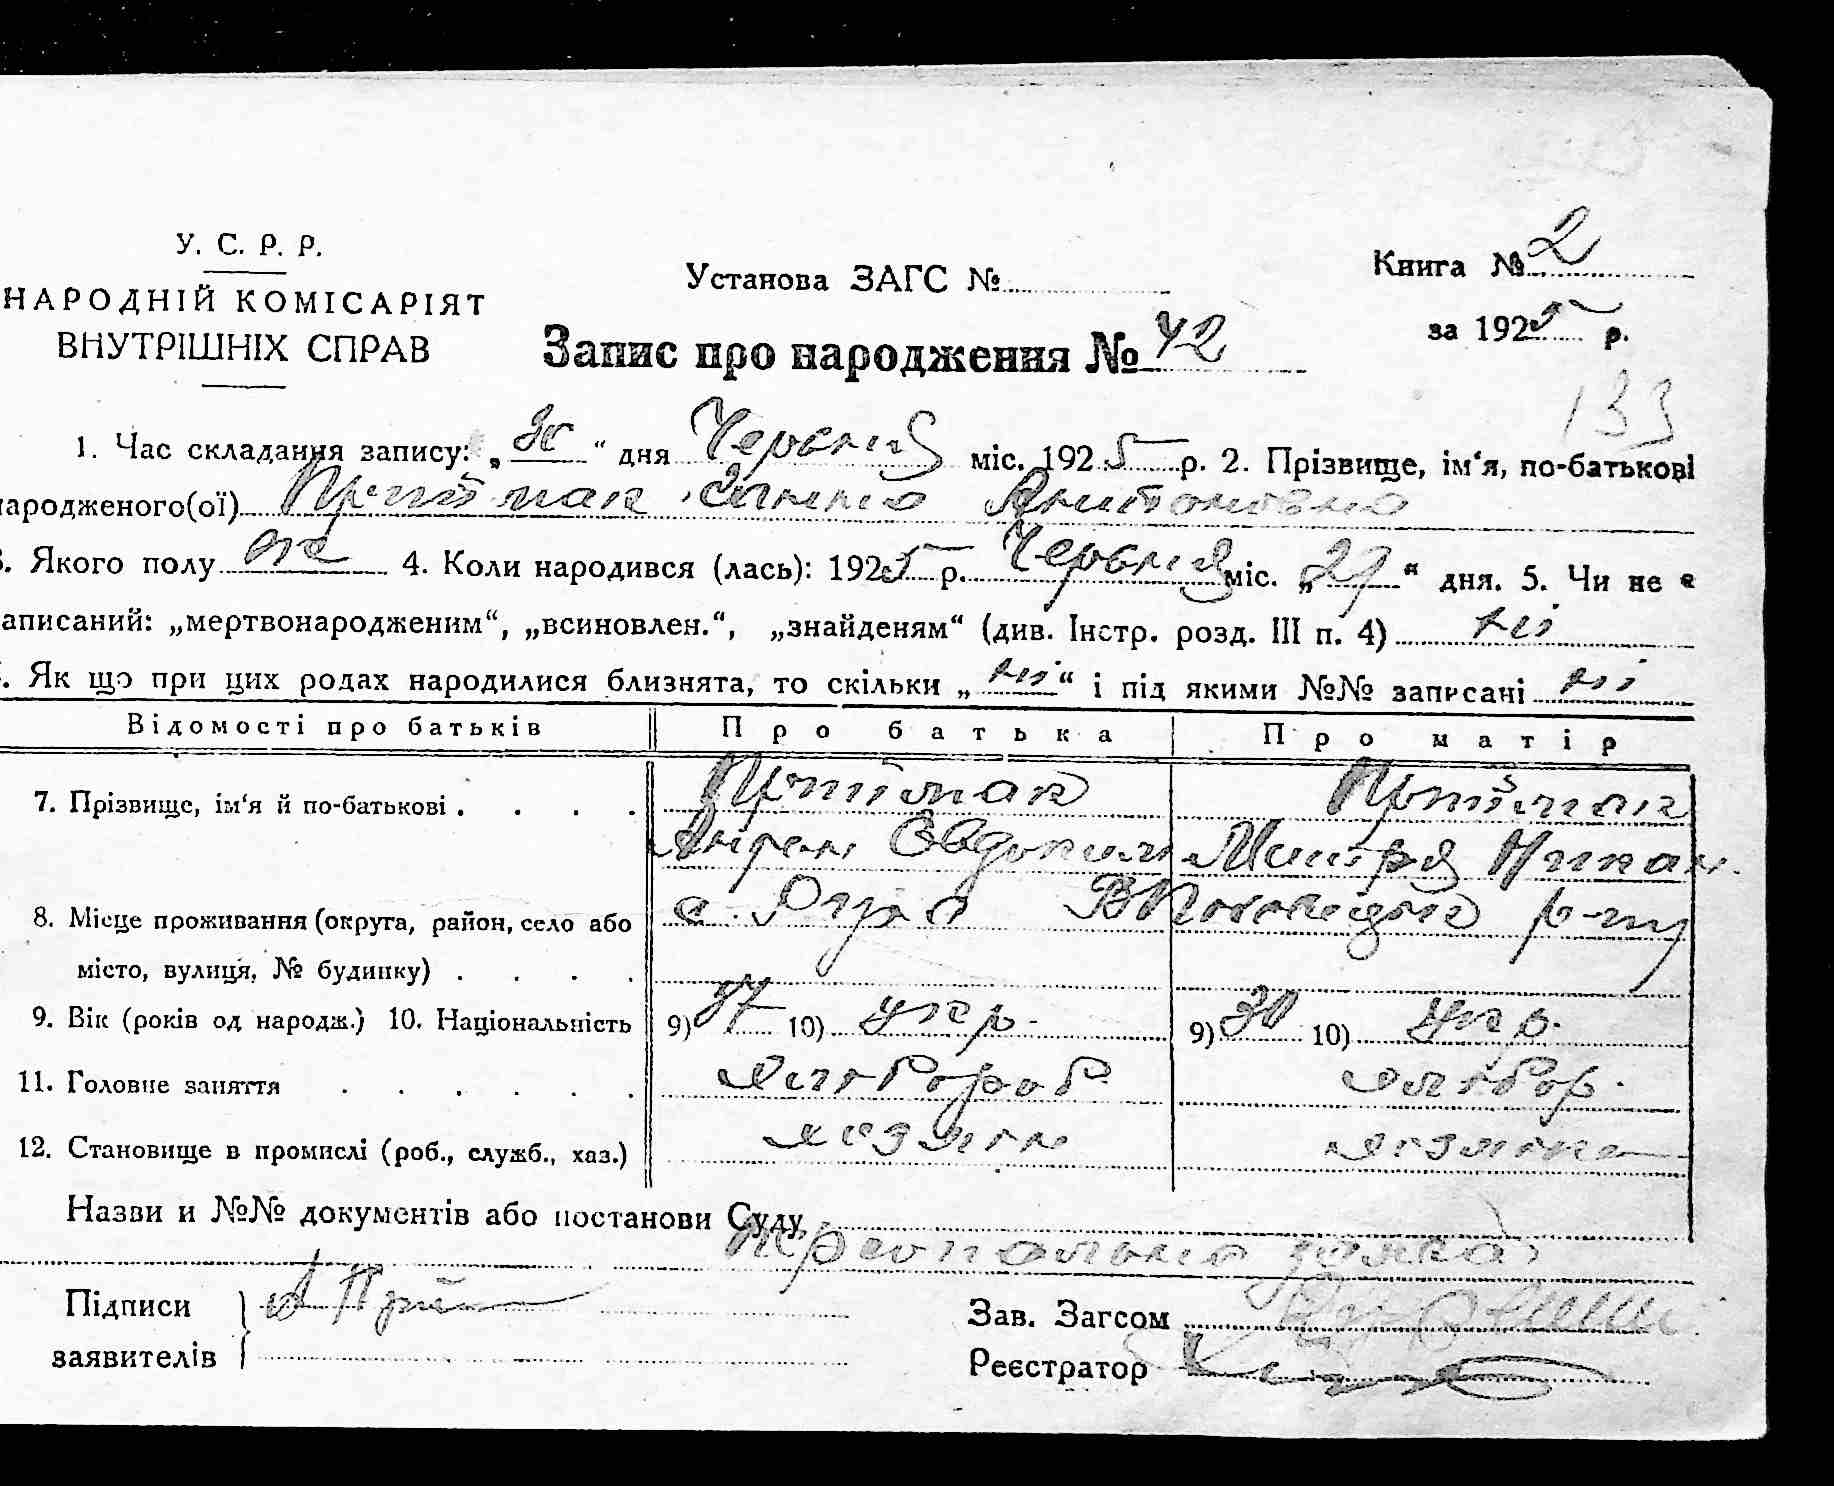 У. С. Р. Р.
НАРОДНІЙ КОМІСАРІЯТ
ВНУТРІШНІХ СПРАВ
Установа ЗАГС №
Книга № 2
за 1925 р.
Запис про народження № 42
133
1. Час складання запису: „30“ дня Червня міс. 1925 р. 2. Прізвище, ім‘я, по-батькові
народженого(ої) Приймак Ганна Антоновна
3. Якого полу же 4. Коли народився (лась): 1925 р. Червня міс. „29“ дня. 5. Чи не є
аписаний: „мертвонародженим“, „всиновлен.“, „знайденям“ (див. Інстр. розд. III п. 4) ні
. Як що при цих родах народилися близнята, то скільки „ні“ і під якими №№ записані ні
Відомості про батьків Про батька Про матір
7. Прізвище, ім‘я й по-батькові . . . . Приймак Приймак
8. Місце проживання (округа, район, село або с. р-ну
місто, вулиця, № будинку) . . . .
9. Вік (років од народж.) 10. Національність 9) 37 10) укр. 9) 30 10) укр.
11. Головне заняття . . . . . . хлібороб хлібор.
12. Становище в промислі (роб., служб., хаз.) хозяин хозяйка
Назви и №№ документів або постанови Суду
Підписи заявителів А Прий
Зав. Загсом
Реєстратор